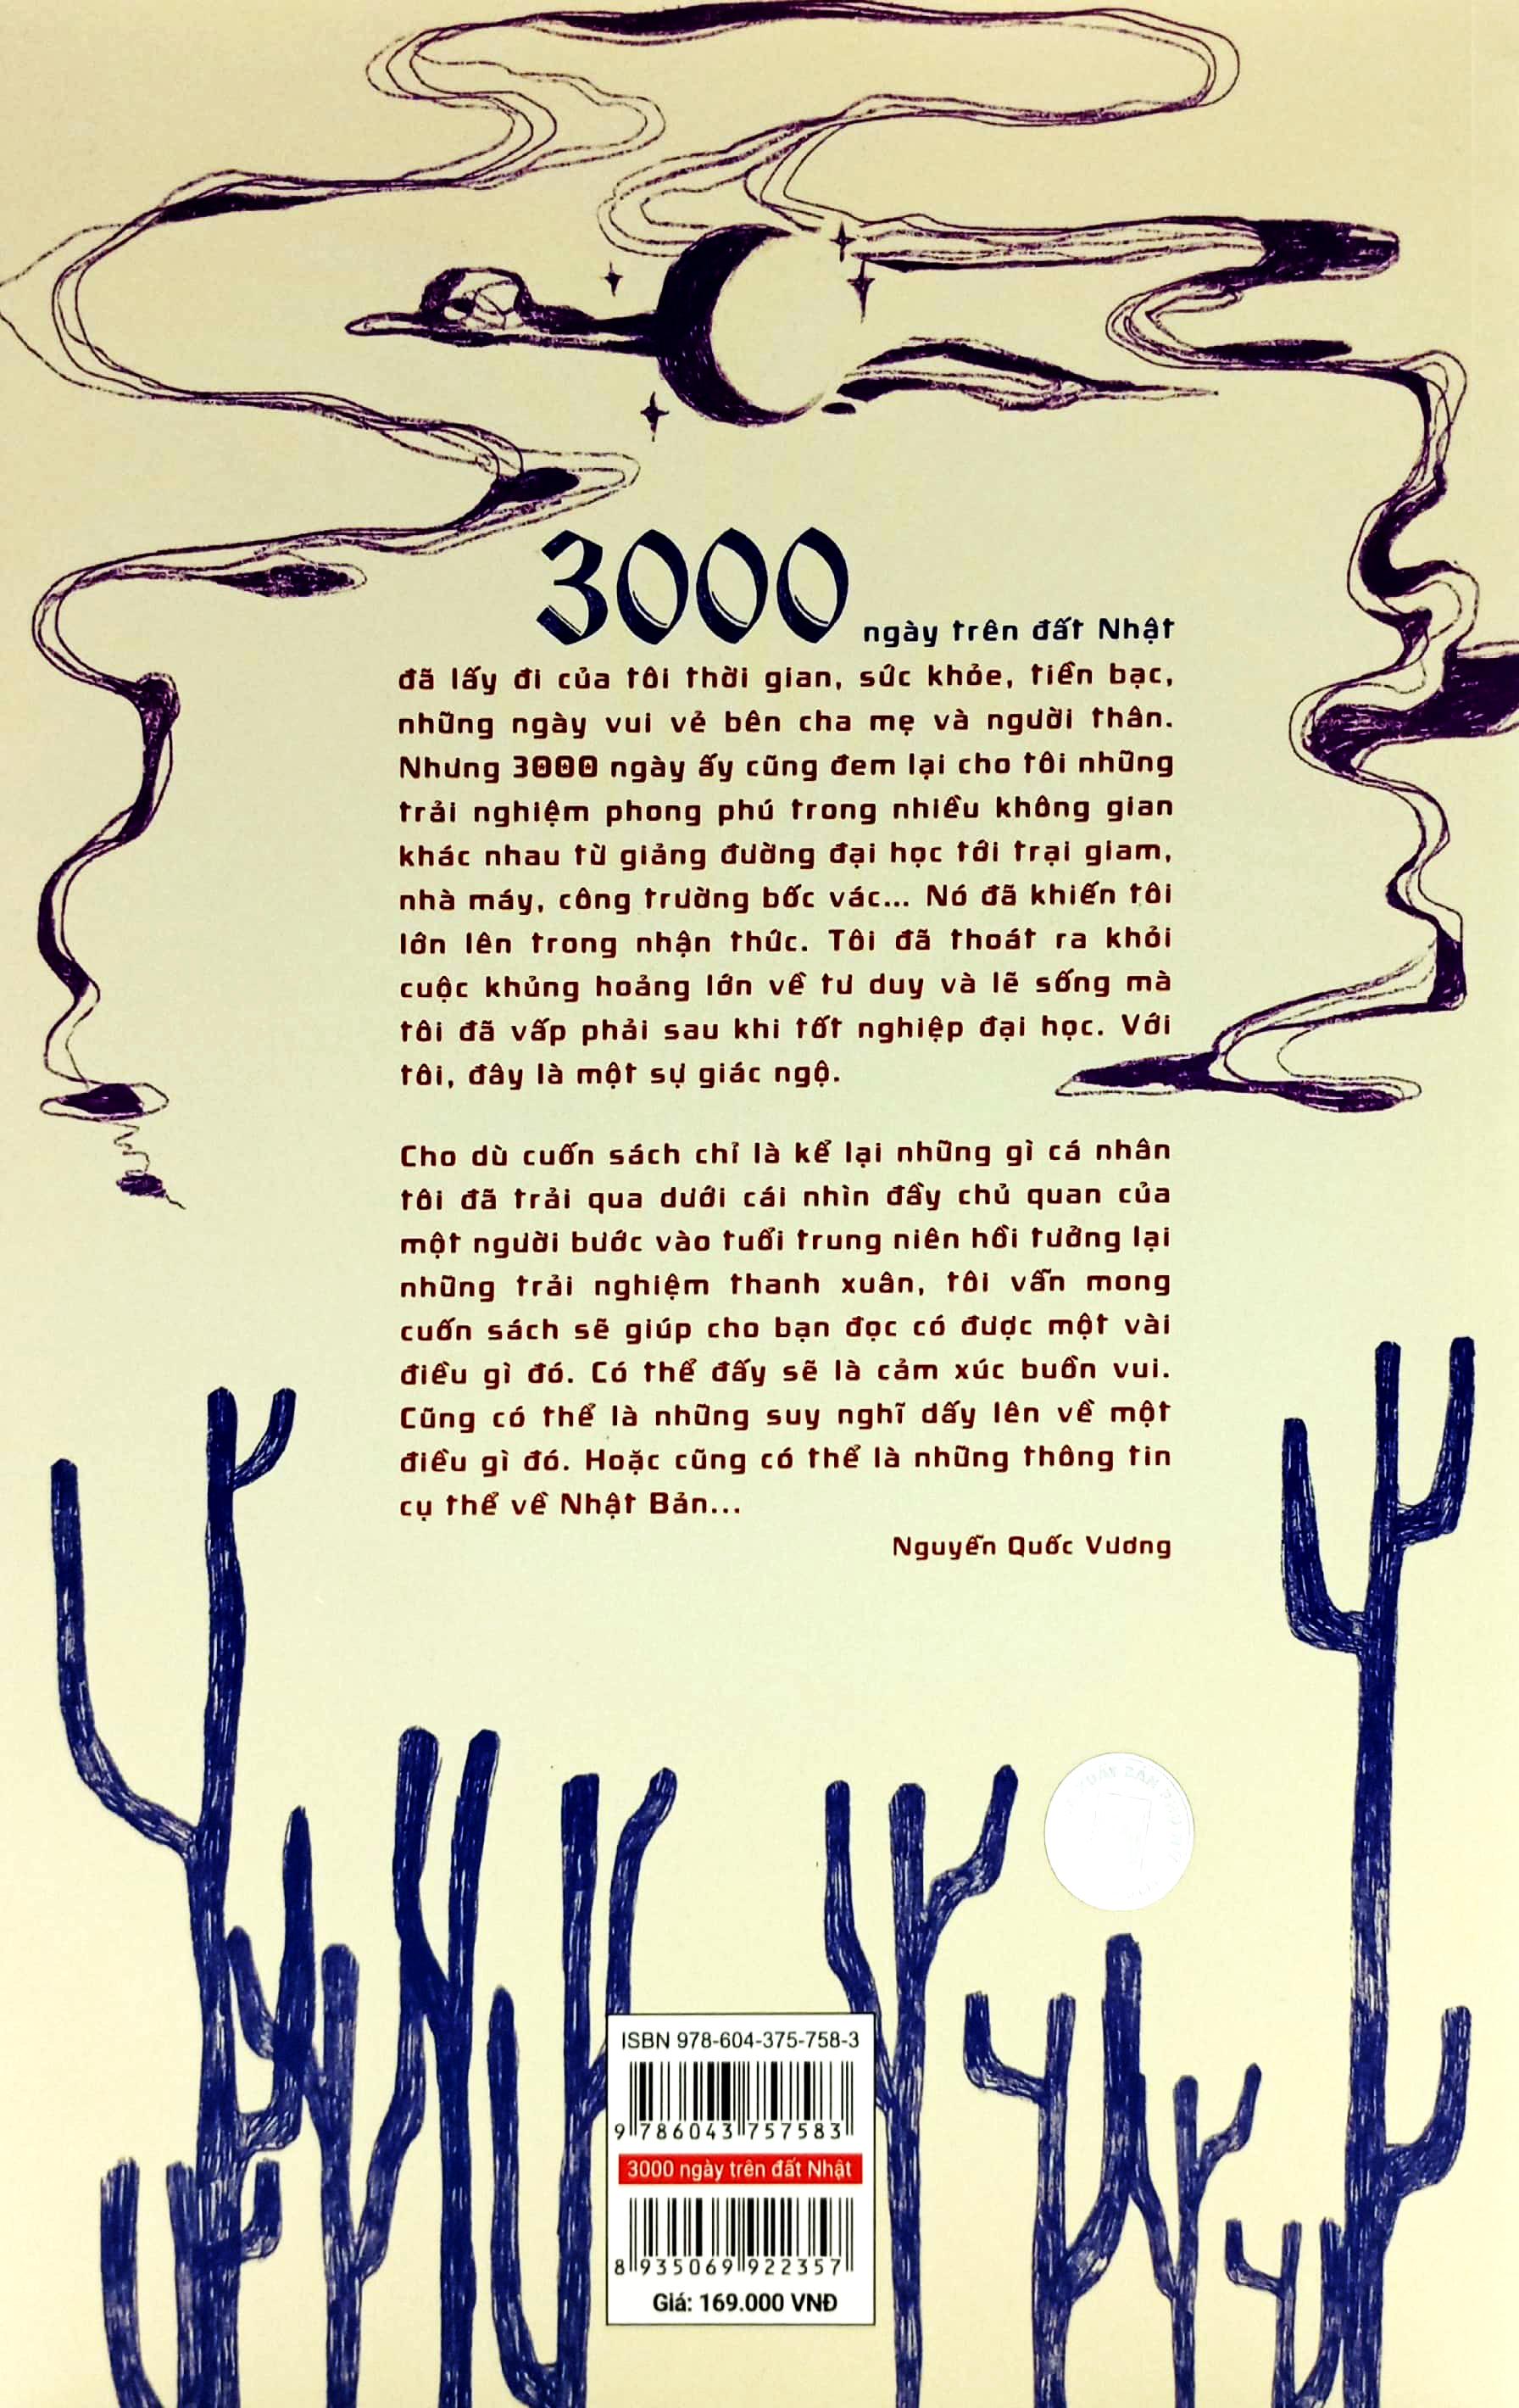 3000 ngày trên đất Nhật
đã lấy đi của tôi thời gian, sức khỏe, tiền bạc,
những ngày vui vẻ bên cha mẹ và người thân.
Nhưng 3000 ngày ấy cũng đem lại cho tôi những
trải nghiệm phong phú trong nhiều không gian
khác nhau từ giảng đường đại học tới trại giam,
nhà máy, công trường bốc vác... Nó đã khiến tôi
lớn lên trong nhận thức. Tôi đã thoát ra khỏi
cuộc khủng hoảng lớn về tư duy và lẽ sống mà
tôi đã vấp phải sau khi tốt nghiệp đại học. Với
tôi, đây là một sự giác ngộ.
Cho dù cuốn sách chỉ là kể lại những gì cá nhân
tôi đã trải qua dưới cái nhìn đầy chủ quan của
một người bước vào tuổi trung niên hồi tưởng lại
những trải nghiệm thanh xuân, tôi vẫn mong
cuốn sách sẽ giúp cho bạn đọc có được một vài
điều gì đó. Có thể đấy sẽ là cảm xúc buồn vui.
Cũng có thể là những suy nghĩ dấy lên về một
điều gì đó. Hoặc cũng có thể là những thông tin
cụ thể về Nhật Bản...
Nguyễn Quốc Vương
ISBN 978-604-375-758-3
9 786043 757583
3000 ngày trên đất Nhật
8 935069 922357
Giá: 169.000 VNĐ